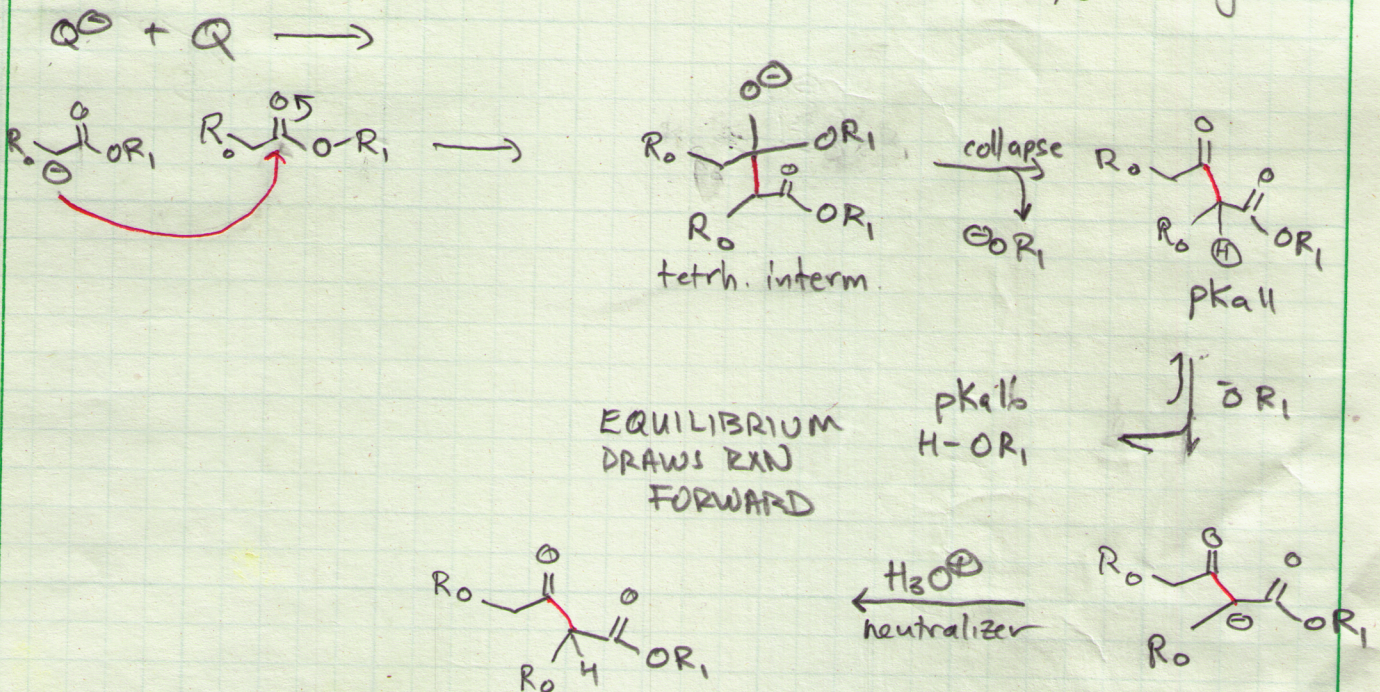 Q⊖ + Q ⟶
R₀ ⊖ O OR₁ R₀ O O-R₁ ⟶
O⊖ R₀ OR₁ R₀ O OR₁
tetrh. interm.
collapse
⊖OR₁
R₀ O R₀ H O OR₁
pKa11
ŌR₁
pKa16
H-OR₁
EQUILIBRIUM
DRAWS RXN
FORWARD
R₀ O R₀ ⊖ O OR₁
H₃O⊕
neutralizer
R₀ O R₀ H O OR₁